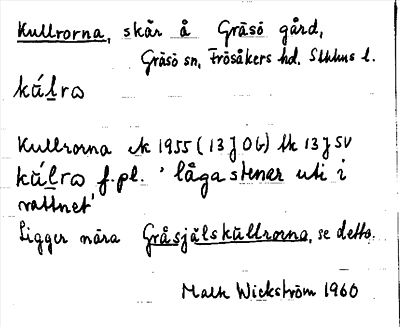 Kullrorna, skär å Gräsö gård,
Gräsö sn, Frösåkers hd, Sthlms l.
kúl̲rω
Kullrorna ek 1955 (13 J OG) tk 13 J SV
kúl̲rω f.pl. 'låga stenar uti i
vattnet'
Ligger nära Gråsjälskullrorna, se detta.
Mats Wickström 1960